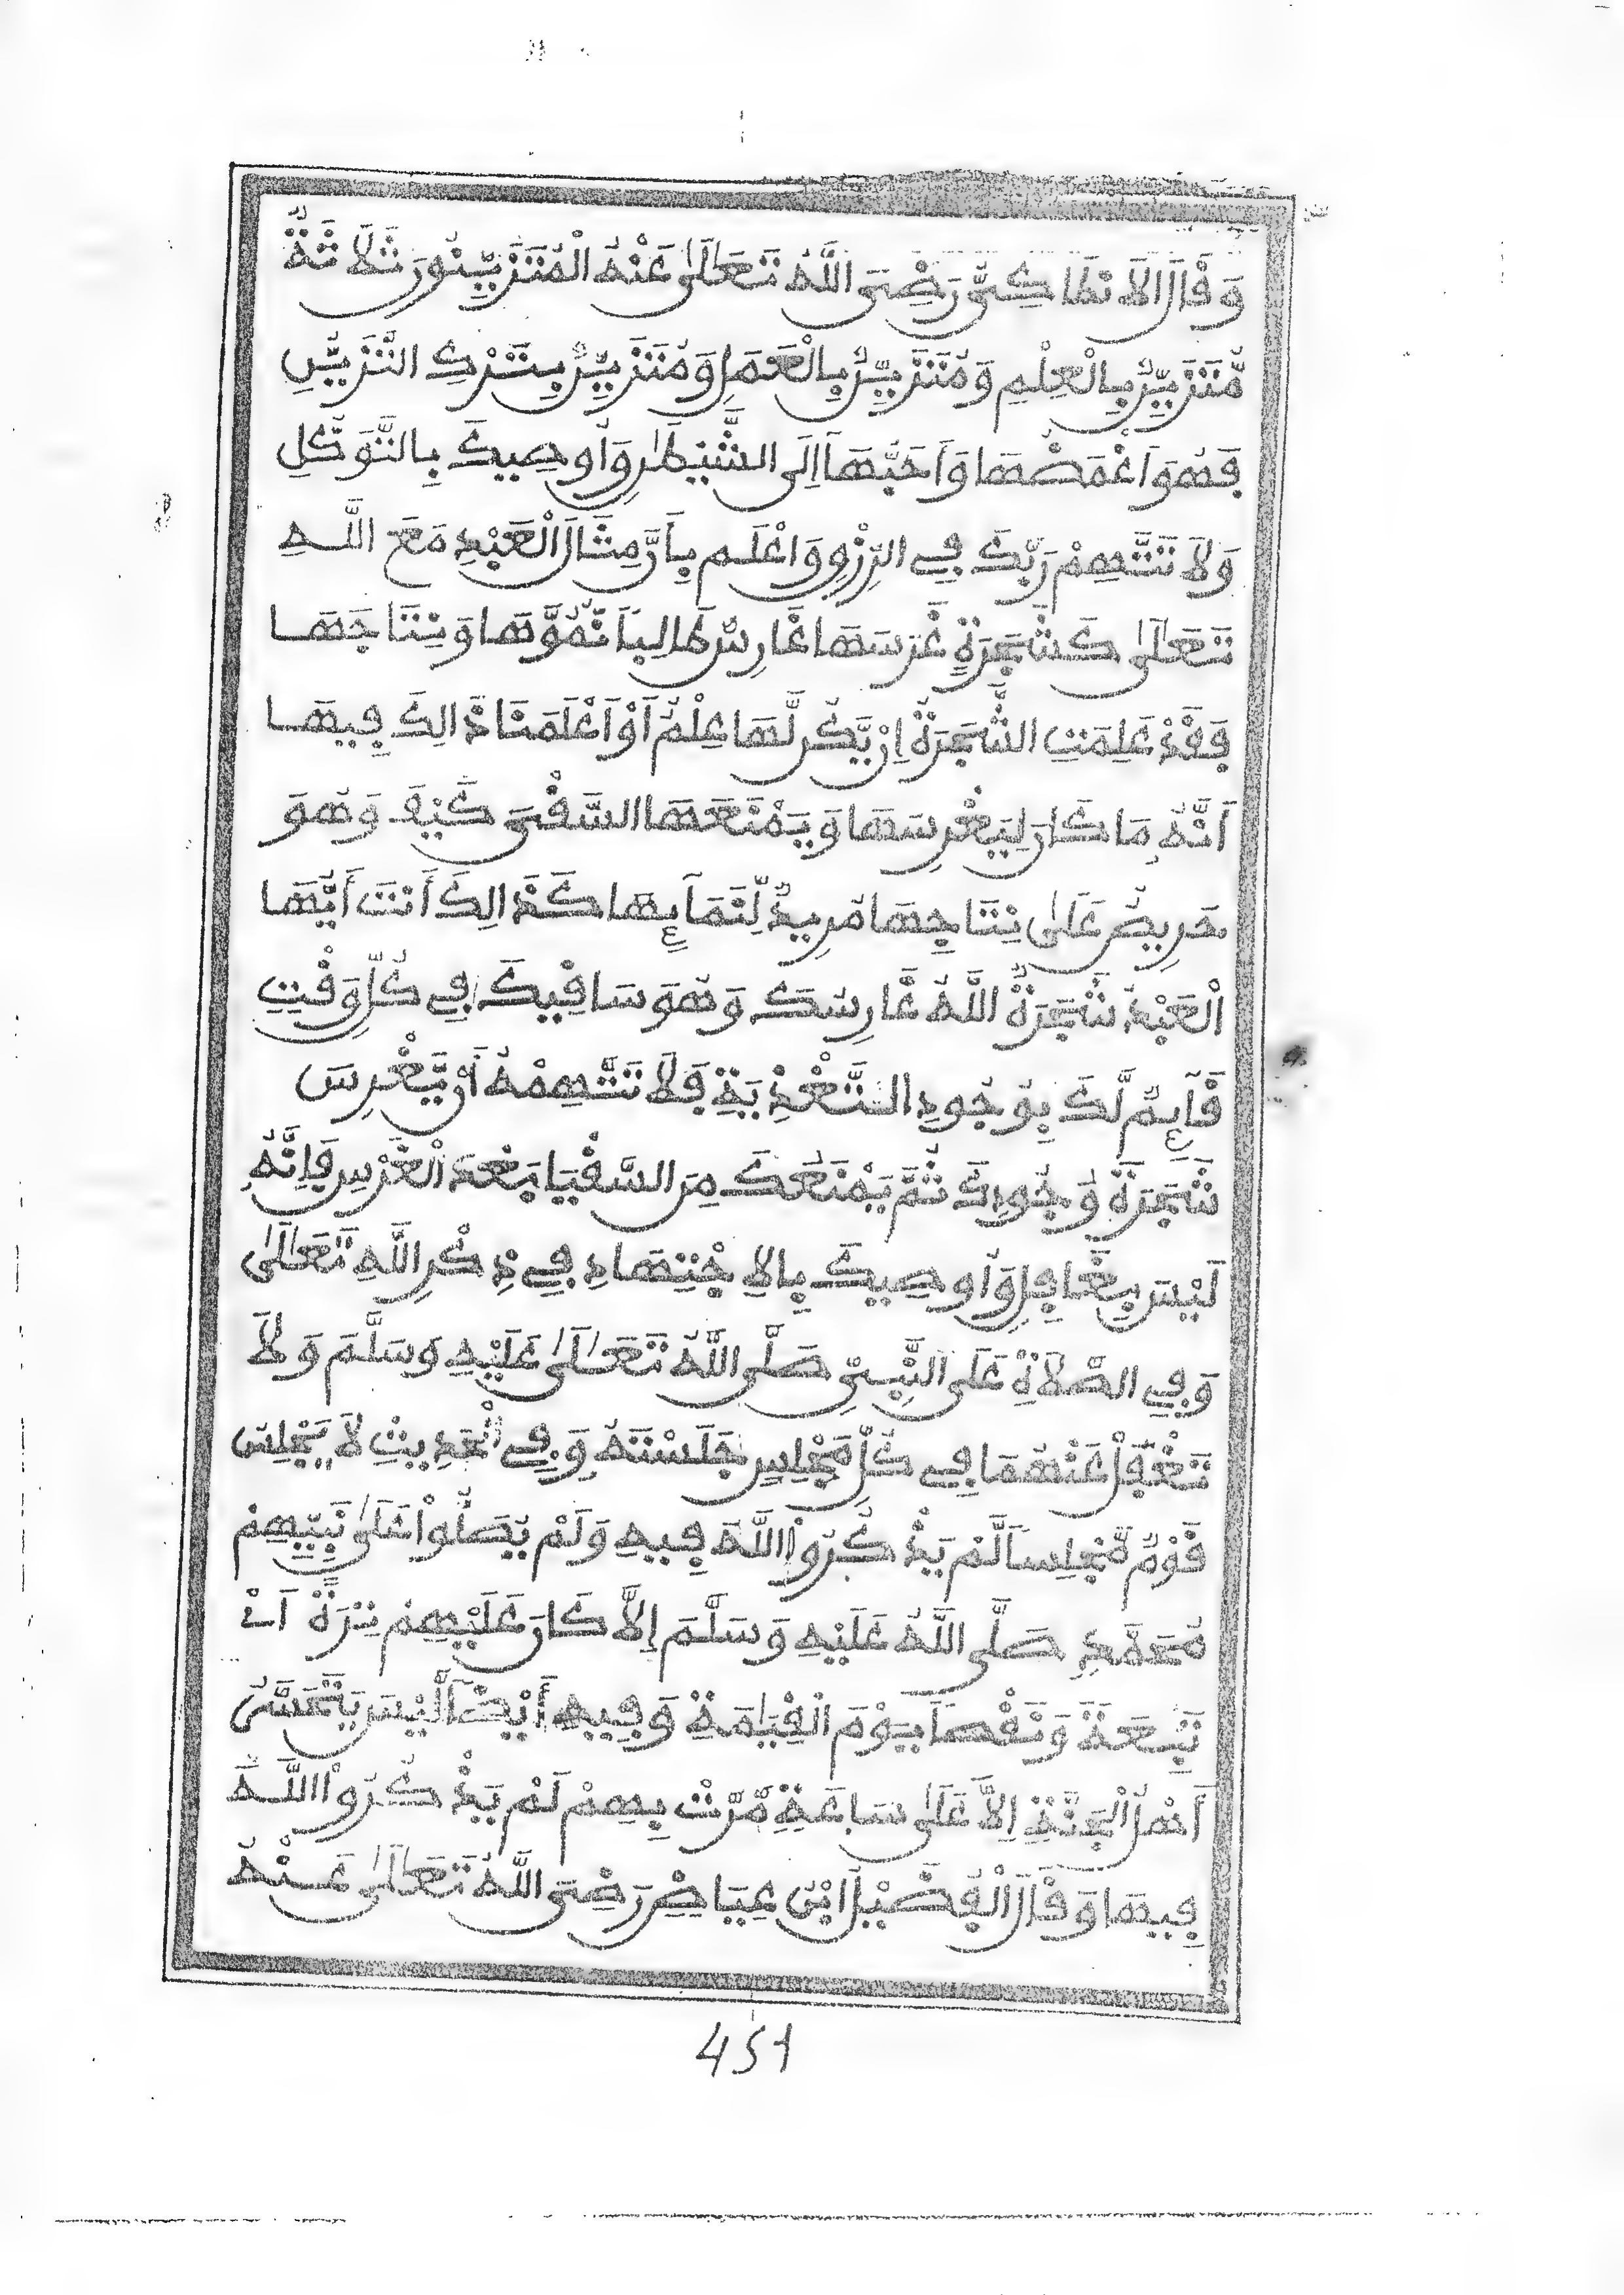 وَقَالَ الْأَنْطَاكِيُّ رَضِيَ اللَّهُ تَعَالَىٰ عَنْهُ الْمُتَزَيِّنُونَ ثَلَاثَةٌ
مُّتَزَيِّنٌ بِالْعِلْمِ وَمُتَزَيِّنٌ بِالْعَمَلِ وَمُتَزَيِّنٌ بِتَرْكِ التَّزَيُّنِ
فَهُوَ أَغْمَضُهَا وَأَحَبُّهَا إِلَى الشَّيْطَٰنِ وَأُوصِيكَ بِالتَّوَكُّلِ
وَلَا تَتَّهِمْ رَبَّكَ فِي الرِّزْقِ وَاعْلَم بِأَنَّ مِثَالَ الْعَبْدِ مَعَ اللَّهِ
تَعَالَىٰ كَشَجَرَةٍ غَرَسَهَا غَارِسٌ طَالِبًا نُّمُوَّهَا وَنِتَاجَهَا
فَقَدْ عَلِمَتِ الشَّجَرَةُ إِنْ يَّكُن لَّهَا عِلْمٌ أَوْ أَعْلَمَنَا ذَٰلِكَ فِيهَا
أَنَّهُ مَا كَانَ لِيَغْرِسَهَا وَيَمْنَعَهَا السَّقْيَ كَيْفَ وَهُوَ
حَرِيصٌ عَلَىٰ نِتَاجِهَا مُرِيدٌ لِّنَمَائِهَا كَذَٰلِكَ أَنتَ أَيُّهَا
الْعَبْدُ شَجَرَةٌ اللَّهُ غَارِسُكَ وَهُوَ سَاقِيكَ فِي كُلِّ وَقْتٍ
قَائِمٌ لَّكَ بِوُجُودِ التَّغْذِيَةِ فَلَا تَتَّهِمْهُ أَنْ يَّغْرِسَ
شَجَرَةَ وُجُودِكَ ثُمَّ يَمْنَعُكَ مِنَ السُّقْيَا بَعْدَ الْغَرْسِ فَإِنَّهُ
لَيْسَ بِغَافِلٍ وَأُوصِيكَ بِالِاجْتِهَادِ فِي ذِكْرِ اللَّهِ تَعَالَىٰ
وَفِي الصَّلَاةِ عَلَى النَّبِيِّ صَلَّى اللَّهُ تَعَالَىٰ عَلَيْهِ وَسَلَّمَ وَلَا
تَغْفُلْ عَنْهُمَا فِي كُلِّ مَجْلِسٍ جَلَسْتَهُ وَفِي الْحَدِيثِ لَا يَجْلِسُ
قَوْمٌ مَّجْلِسًا لَّمْ يَذْكُرُوا اللَّهَ فِيهِ وَلَمْ يُصَلُّوا عَلَىٰ نَبِيِّهِمْ
مُحَمَّدٍ صَلَّى اللَّهُ عَلَيْهِ وَسَلَّمَ إِلَّا كَانَ عَلَيْهِمْ تِرَةً أَىْ
تَبِعَةً وَنَقْصًا يَوْمَ الْقِيَٰمَةِ وَفِيهِ أَيْضًا لَّيْسَ يَتَحَسَّرُ
أَهْلُ الْجَنَّةِ إِلَّا عَلَىٰ سَاعَةٍ مَّرَّتْ بِهِمْ لَمْ يَذْكُرُوا اللَّهَ
فِيهَا وَقَالَ الْفُضَيْلُ ابْنُ عِيَاضٍ رَضِيَ اللَّهُ تَعَالَىٰ عَنْهُ
451